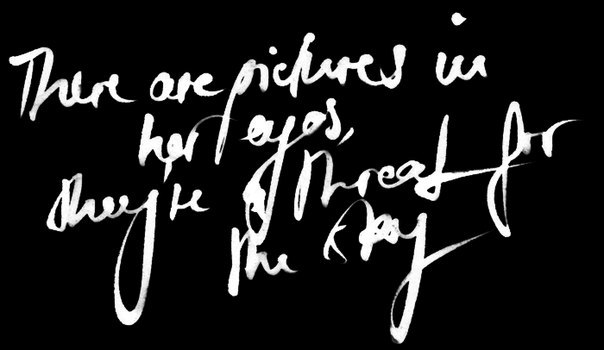 There are pictures in
her eyes,
they're a threat for
the sky